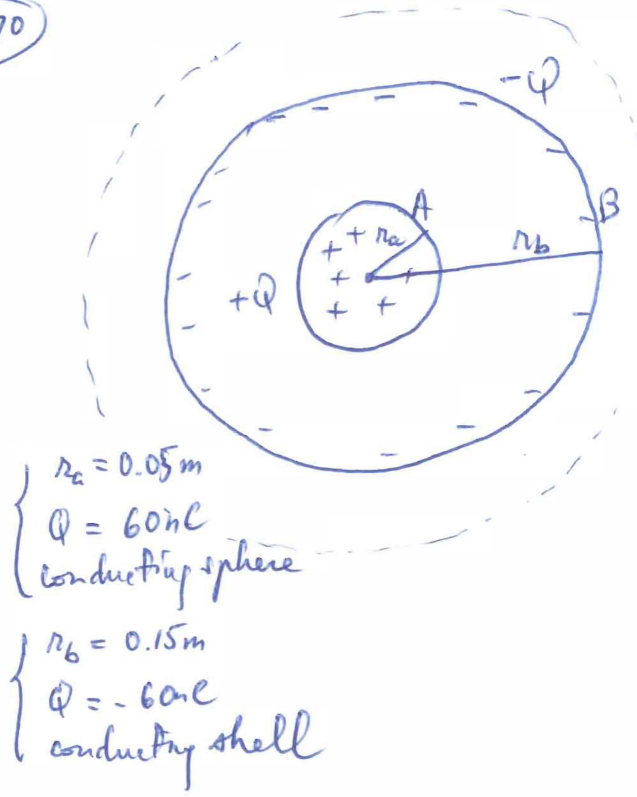 70
-Q
A
B
+ + ra
rb
+Q
ra = 0.05m
Q = 60nC
conducting sphere
rb = 0.15m
Q = -60nC
conducting shell